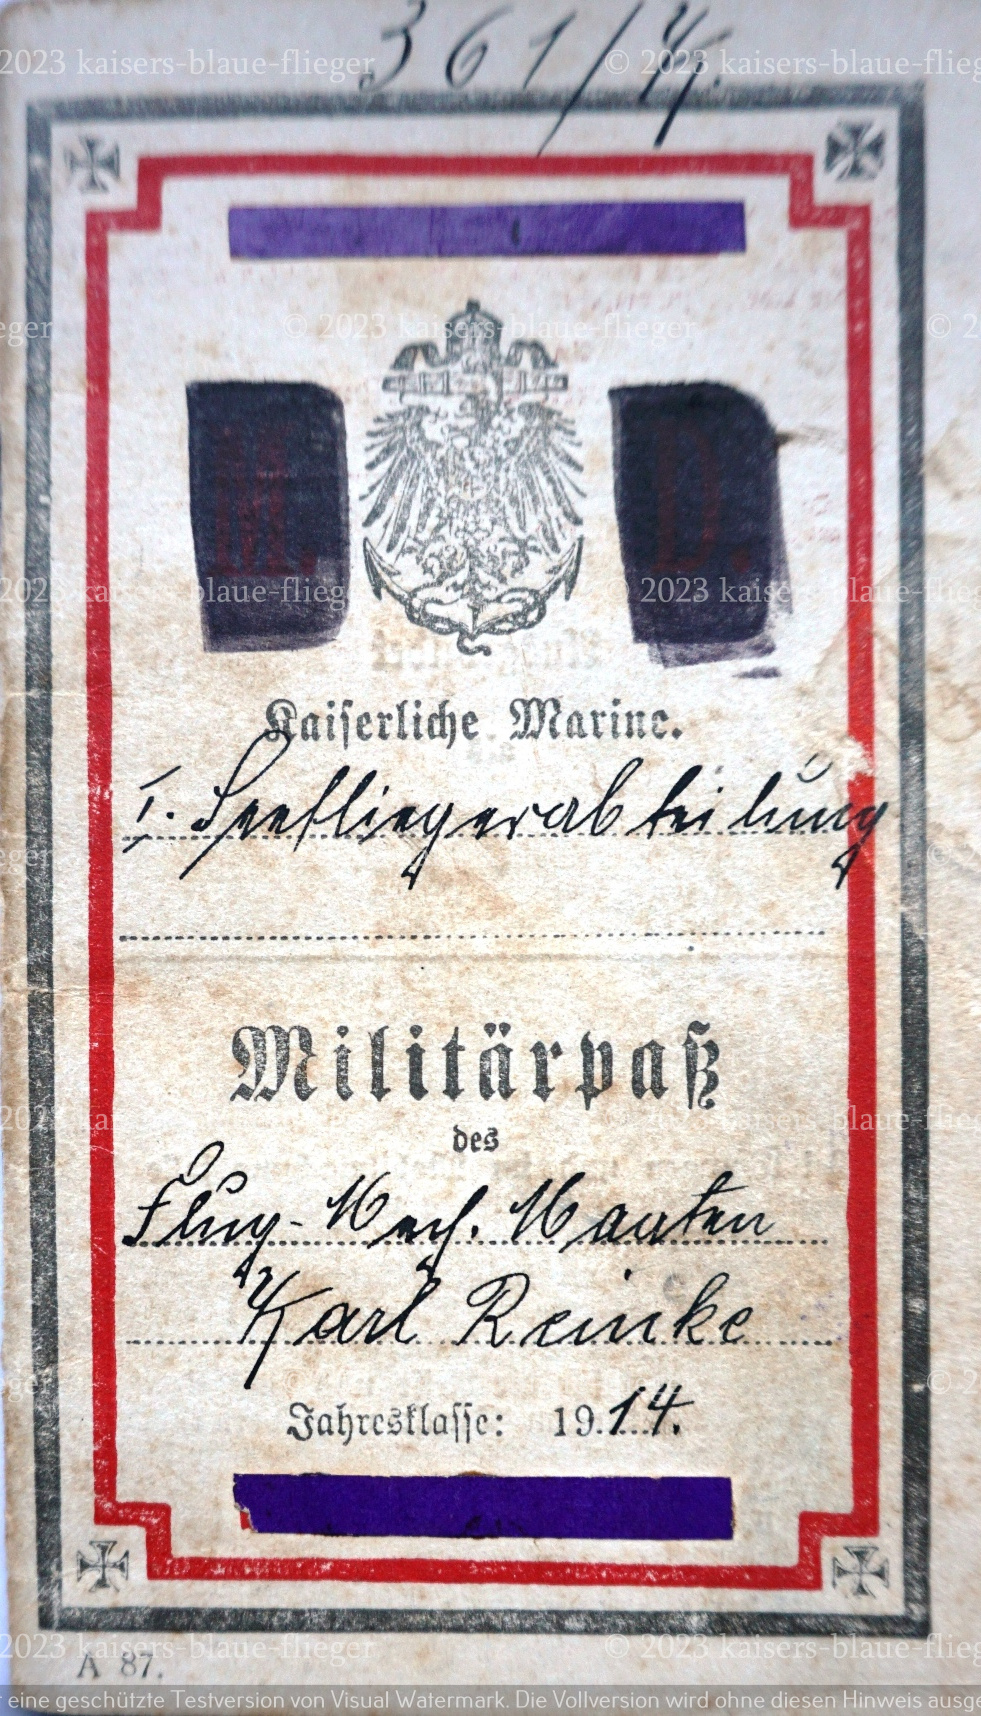 361/4.
© 2023 kaisers-blaue-flieger
M. D.
Kaiserliche Marine.
I. Seefliegerabteilung
Militärpaß
des
Flug-Mech. Maaten
Karl Reinke
Jahresklasse: 1914.
A 87.
eine geschützte Testversion von Visual Watermark. Die Vollversion wird ohne diesen Hinweis ausge